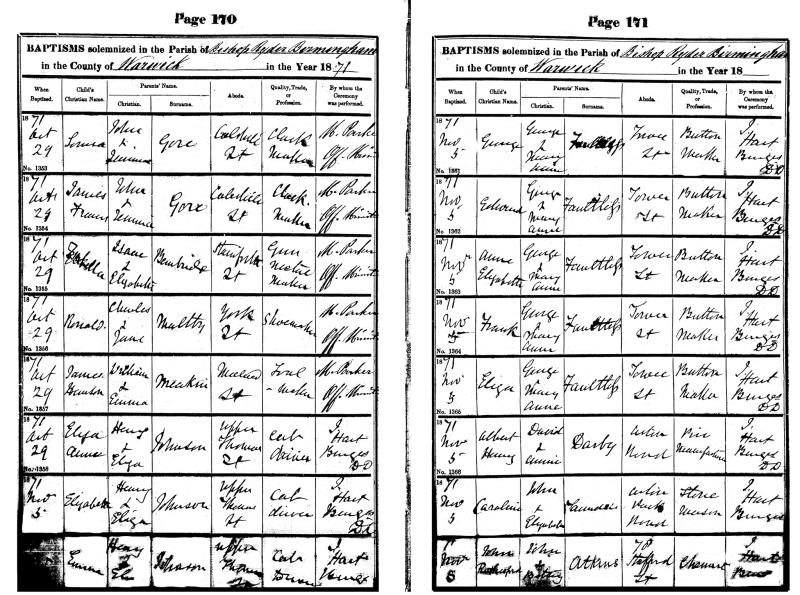 Page 170
BAPTISMS solemnized in the Parish of Bishop Ryder Birmingham
in the County of Warwick in the Year 1871
When Baptised. Child's Christian Name. Parents' Name. Abode. Quality, Trade, or Profession. By whom the Ceremony was performed.
Christian. Surname.
1871 Oct 29 John & Jemima Gore St Clock Maker M. Parker Off. Minister
No. 1353
1871 Oct 29 James John & Jemima Gore St Clock Maker M. Parker Off. Minister
No. 1354
1871 Oct 29 Isaac & Elizabeth St Gun Maker M. Parker Off. Minister
No. 1355
1871 Oct 29 Ronald Charles & Jane York St Shoemaker M. Parker Off. Minister
No. 1356
1871 Oct 29 James William & Emma Meakin St Tool maker M. Parker Off. Minister
No. 1357
1871 Oct 29 Eliza Annie Henry & Eliza Johnson Upper Thomas St Cab Driver J. Hart Burges DD
No. 1358
1871 Nov 5 Elizabeth Henry & Eliza Johnson Upper Thomas St Cab driver J. Hart Burges DD
Emma Henry & Johnson Upper Thomas St Cab J. Hart Burges
Page 171
BAPTISMS solemnized in the Parish of Bishop Ryder Birmingham
in the County of Warwick in the Year 18
When Baptised. Child's Christian Name. Parents' Name. Abode. Quality, Trade, or Profession. By whom the Ceremony was performed.
Christian. Surname.
1871 Nov 5 George George & Mary Anne Faultless Tower St Button Maker J. Hart Burges DD
No. 1361
1871 Nov 5 Edward George & Mary Anne Faultless Tower St Button Maker J. Hart Burges DD
No. 1362
1871 Nov 5 Anne Elizabeth George & Mary Anne Faultless Tower St Button Maker J. Hart Burges DD
No. 1363
1871 Nov 5 Frank George & Mary Anne Faultless Tower St Button Maker J. Hart Burges DD
No. 1364
1871 Nov 5 Eliza George & Mary Anne Faultless Tower St Button Maker J. Hart Burges DD
No. 1365
1871 Nov 5 Albert Henry David & Annie Darby Aston Road J. Hart Burges DD
No. 1366
1871 Nov 5 Caroline John & Elizabeth Saunders Aston Road Stone Mason J. Hart Burges
Nov 5 John John & Atkins 78 Stafford St Chemist J. Hart